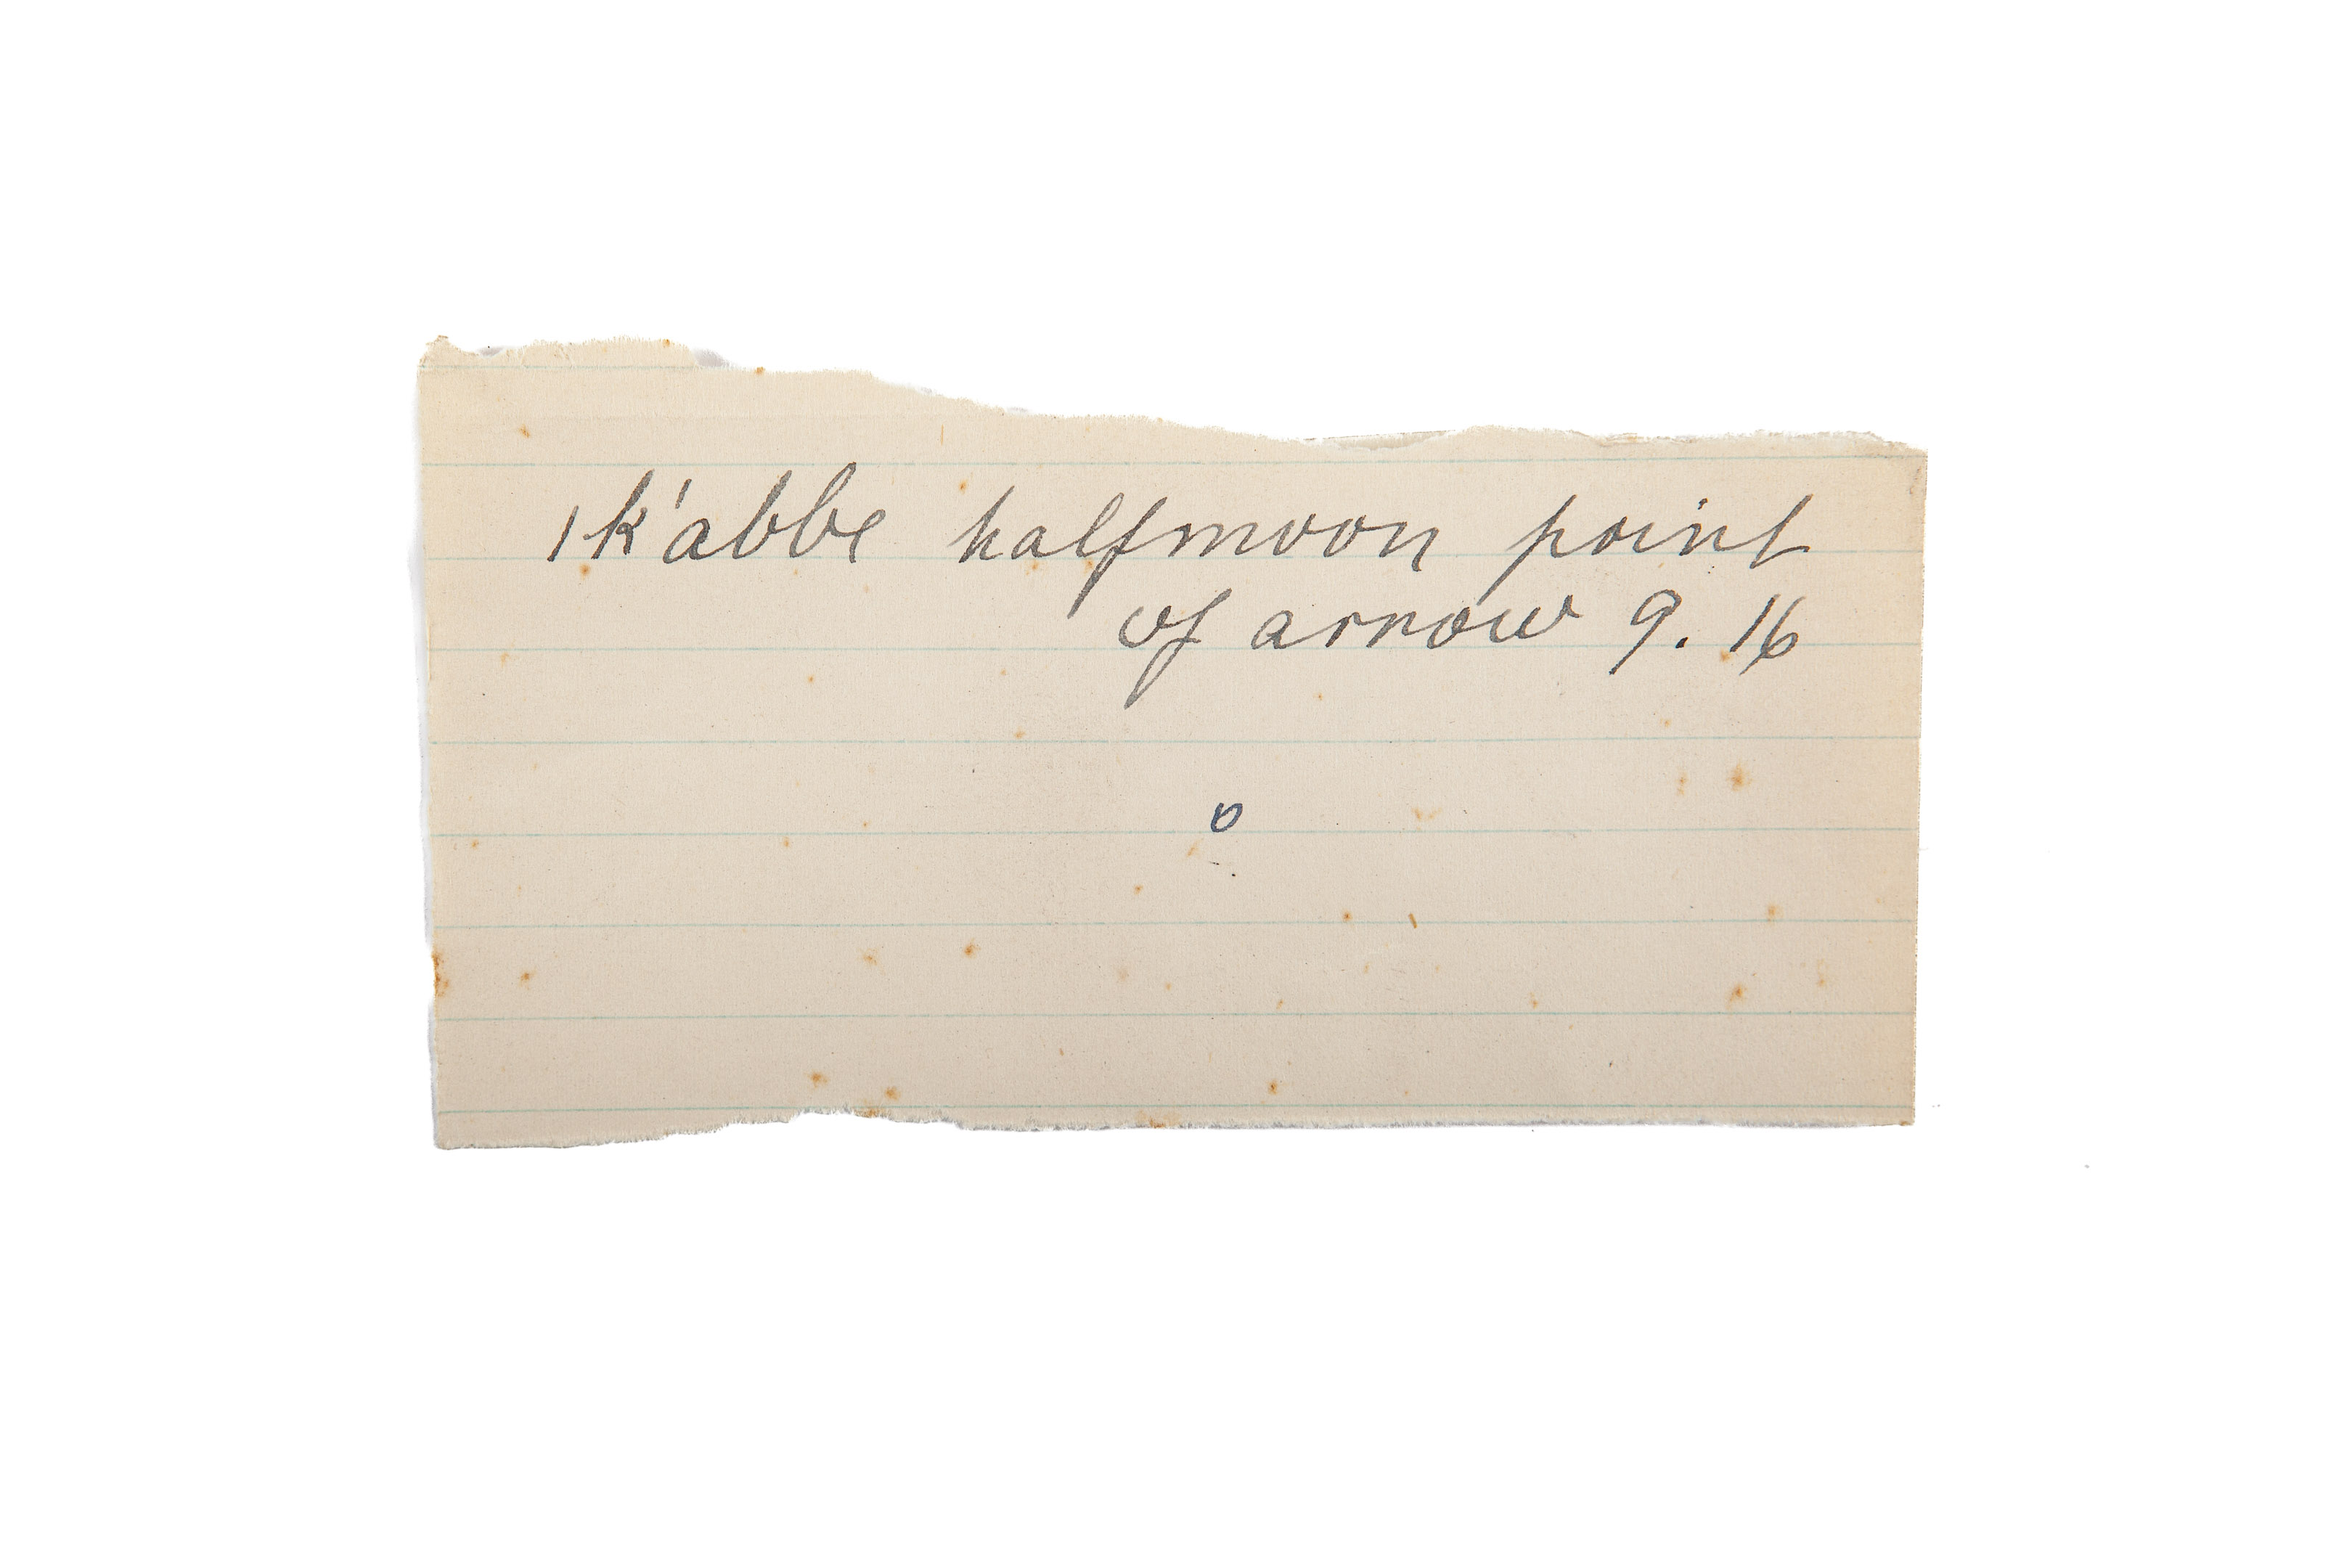 ǀk'abbe halfmoon point
of arrow 9. 16
o